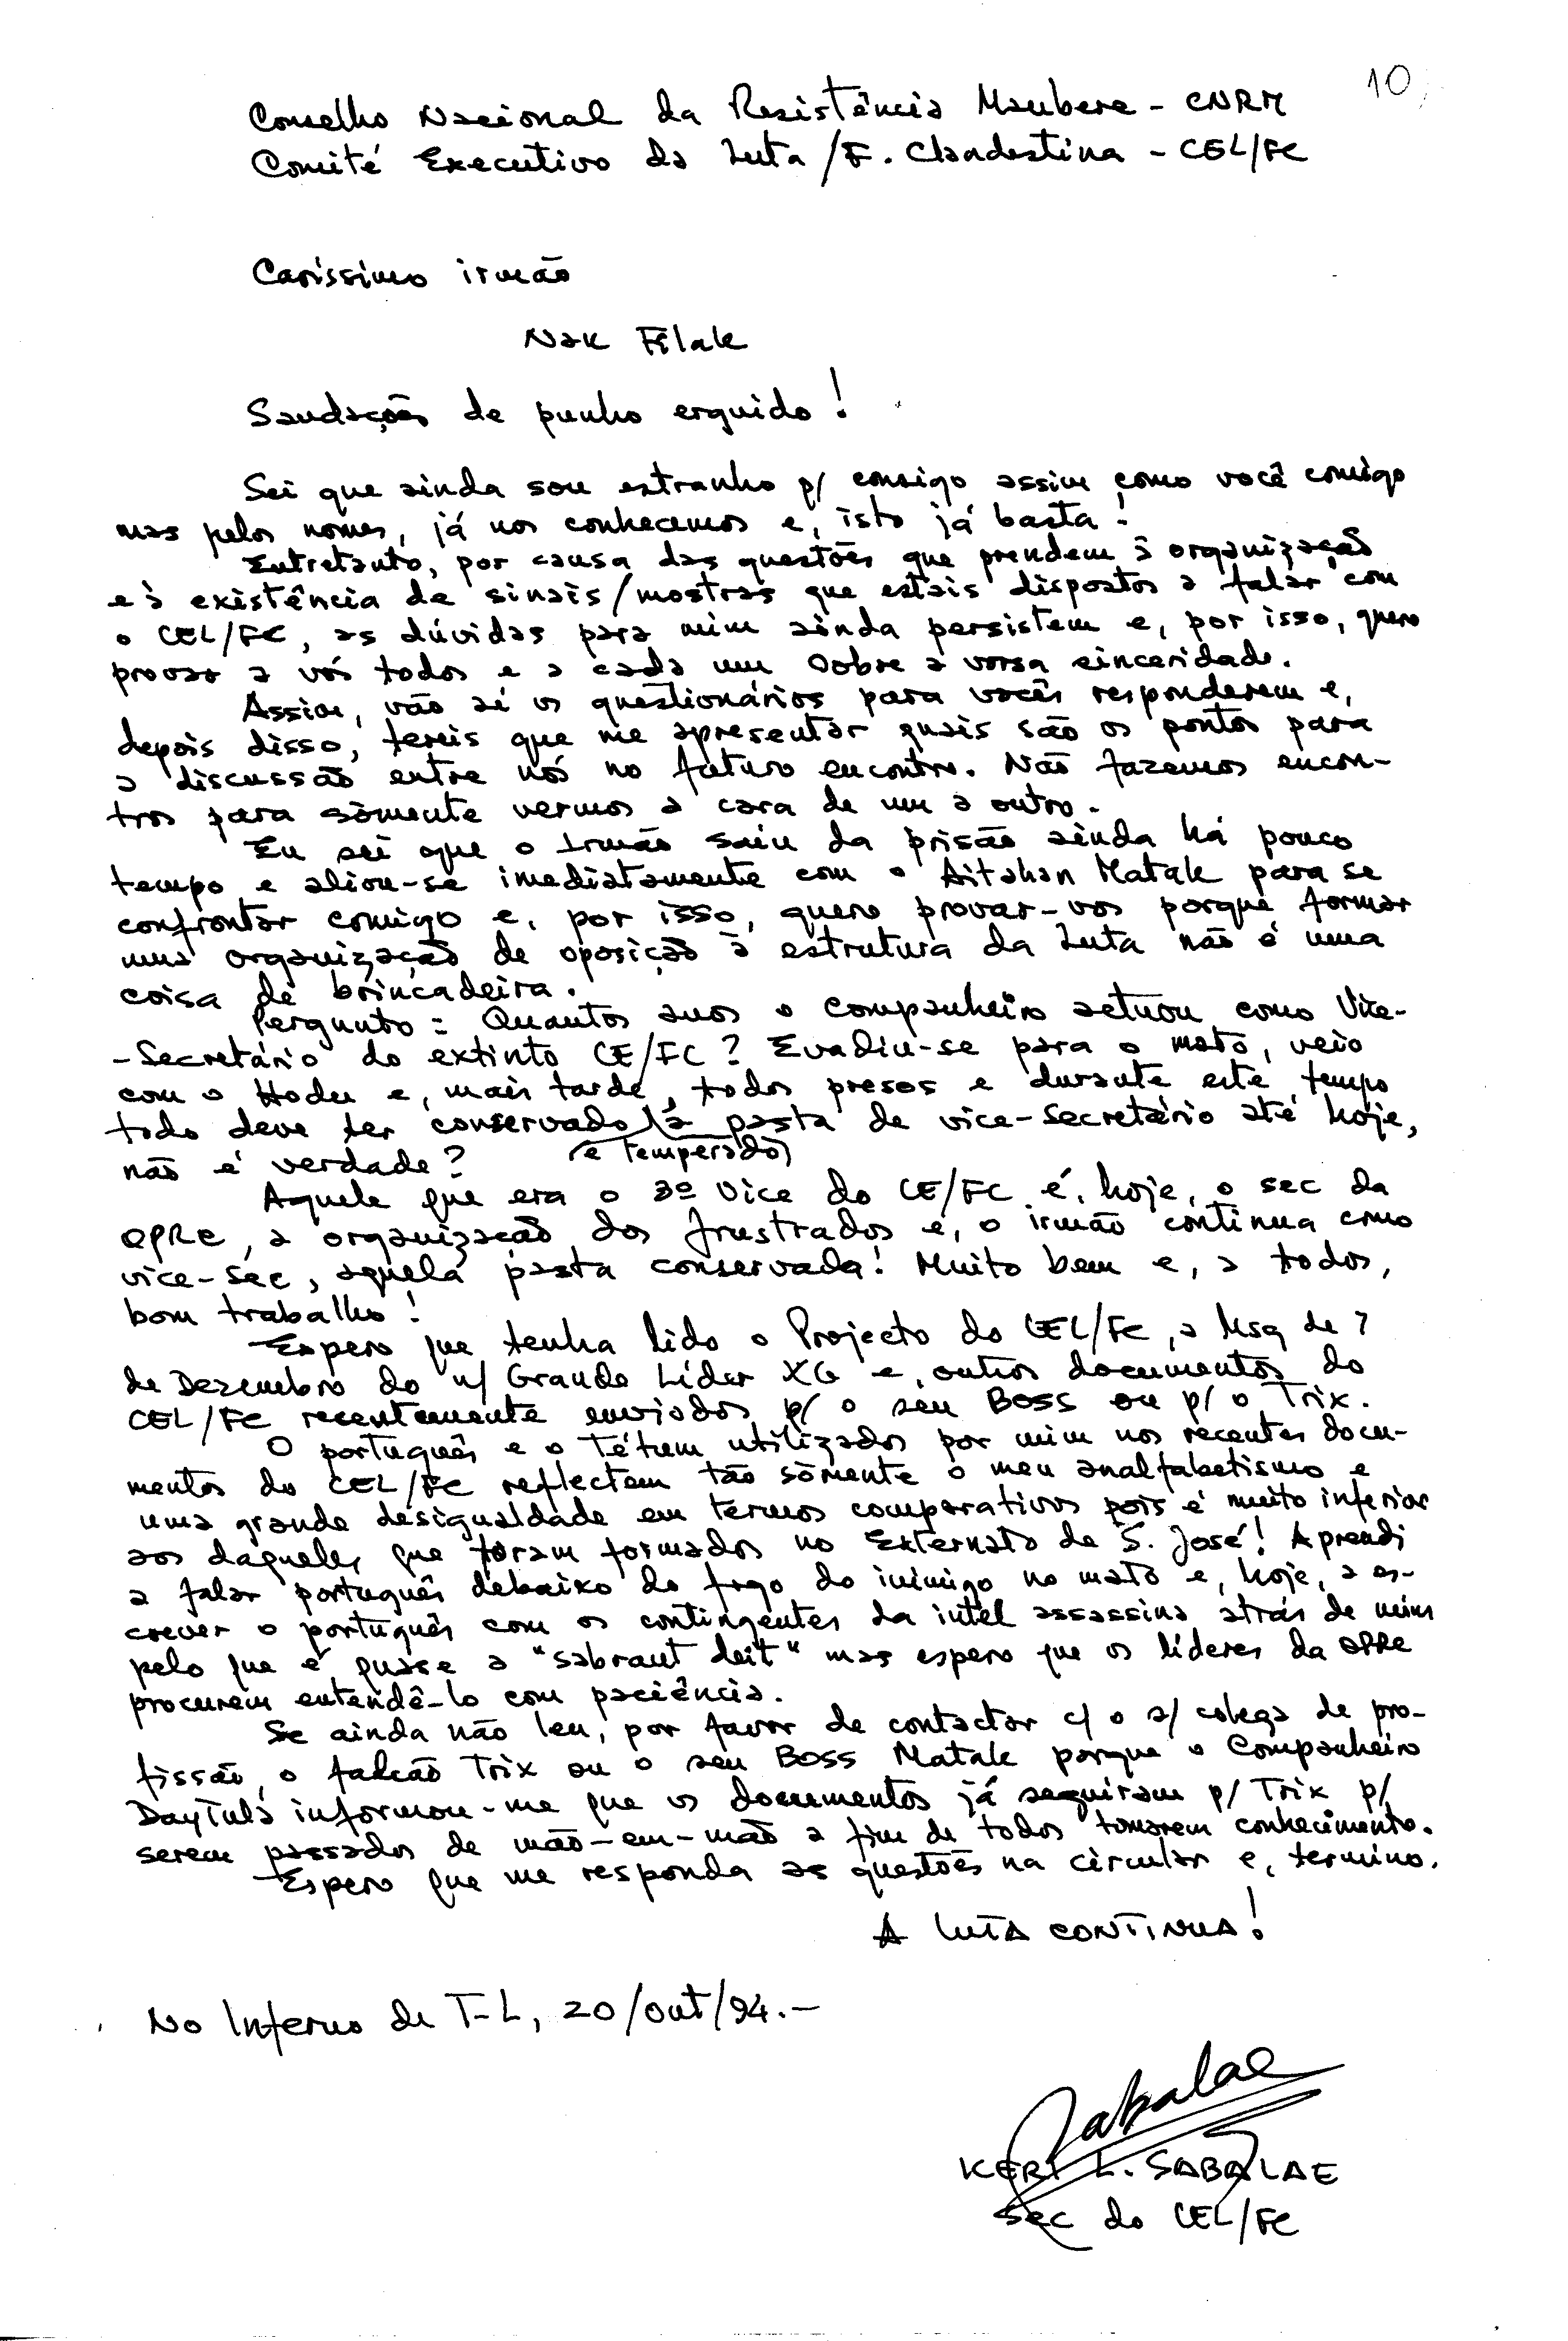 10
Conselho Nacional da Resistência Maubere - CNRM
Comité Executivo da Luta /F. Clandestina - CEL/FC
Caríssimo irmão
Nak Filak
Saudações de punho erguido!
Sei que ainda sou estranho p/ consigo assim como você comigo
mas pelos nomes, já nos conhecemos e, isto já basta!
Entretanto, por causa das questões que prendem à organização
e à existência de sinais/mostras que estais dispostos a falar com
o CEL/FC, as dúvidas para mim ainda persistem e, por isso, quero
provar a vós todos e a cada um sobre a vossa sinceridade.
Assim, vão aí os questionários para vocês responderem e,
depois disso, tereis que me apresentar quais são os pontos para
a discussão entre nós no futuro encontro. Não fazemos encon-
tros para sòmente vermos a cara de um a outro.
Eu sei que o Irmão saiu da prisão ainda há pouco
tempo e aliou-se imediatamente com o Aitahan Matak para se
confrontar comigo e, por isso, quero provar-vos porque formar
uma organização de oposição à estrutura da Luta não é uma
coisa de brincadeira.
Pergunto: Quantos anos o companheiro actuou como Vice-
-Secretário do extinto CE/FC? Evadiu-se para o mato, veio
com o Hodu e, mais tarde, todos presos e durante este tempo
todo deve ter conservado a pasta de vice-secretário até hoje,
não é verdade? (e temperado)
Aquele que era o 3º Vice do CE/FC é, hoje, o sec da
OPRE, a organização dos frustrados e, o irmão continua como
vice-sec, aquela pasta conservada! Muito bem e, a todos,
bom trabalho!
Espero que tenha lido o Projecto do CEL/FC, a Msg de 7
de Dezembro do n/ Grande Líder XG e, outros documentos do
CEL/FC recentemente enviados p/ o seu Boss ou p/ o Trix.
O português e o Tétum utilizados por mim nos recentes docu-
mentos do CEL/FC reflectem tão sòmente o meu analfabetismo e
uma grande desigualdade em termos comparativos pois é muito inferior
aos daqueles que foram formados no Externato de S. José! Aprendi
a falar português debaixo do fogo do inimigo no mato e, hoje, a es-
crever o português com os contingentes da intel assassina atrás de mim
pelo que é quase a "sabraut deit" mas espero que os líderes da OPRE
procurem entendê-lo com paciência.
Se ainda não leu, por favor de contactar c/ o s/ colega de pro-
fissão, o falcão Trix ou o seu Boss Matak porque o Companheiro
DayTula informou-me que os documentos já seguiram p/ Trix p/
serem passados de mão-em-mão a fim de todos tomarem conhecimento.
Espero que me responda as questões na circular e, termino.
A LUTA CONTINUA!
No Inferno de T-L, 20/out/94.-
Sabalae
KERI L. SABALAE
Sec do CEL/FC